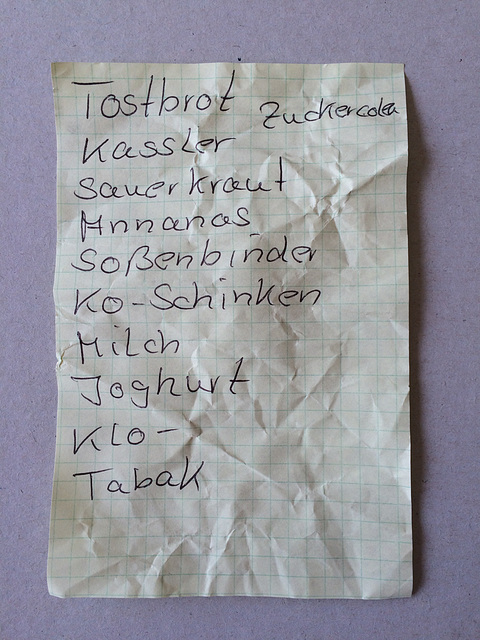 Tostbrot
Zuckercolea
Kassler
Sauerkraut
Annanas
Soßenbinder
Ko-Schinken
Milch
Joghurt
Klo-
Tabak